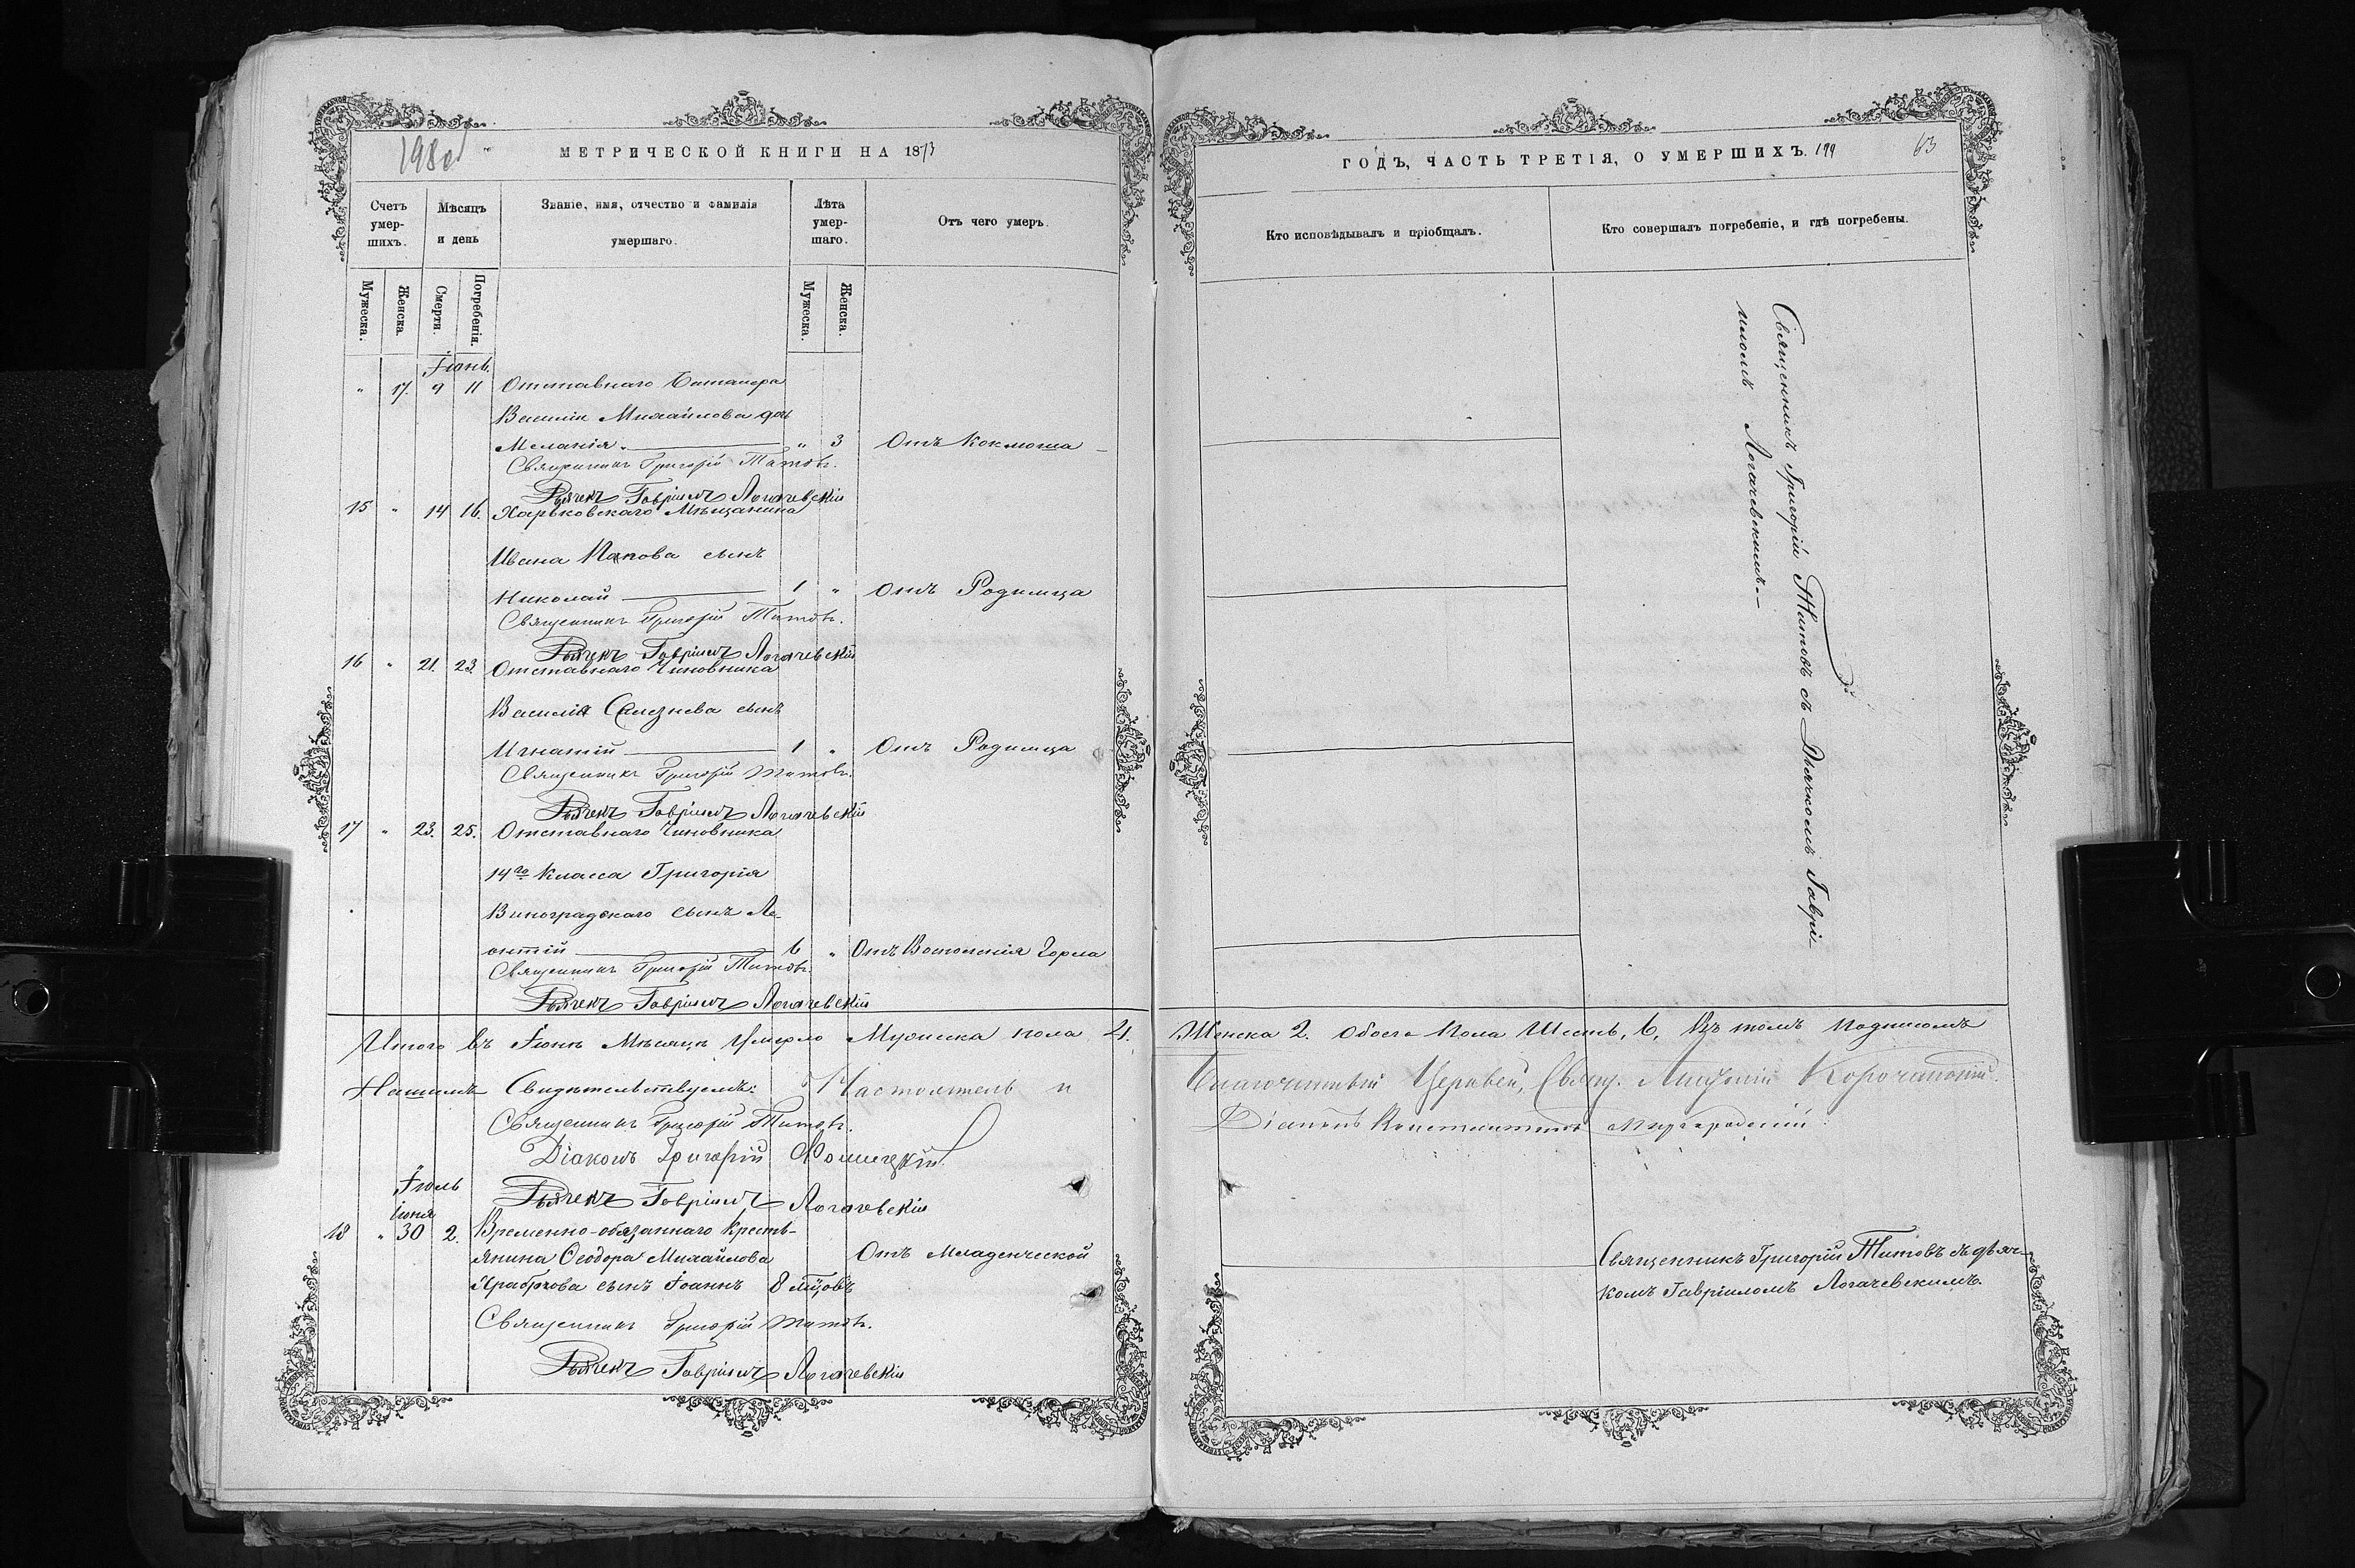 198
МЕТРИЧЕСКОЙ КНИГИ НА 1873
Счетъ умерших.
Мѣсяцъ и день
Званіе, имя, отчество и фамилія умершаго.
Лѣта умершаго.
Отъ чего умеръ.
Мужеска.
Женска.
Смерти.
Погребенія.
Мужеска.
Женска.
Іюнь.
" 17. 9 11 Отставнаго
Василія Михайлова дочь
Меланія. " 3 Отъ Коклюша
Священникъ Григорій Титовъ.
Дьячекъ Гавріилъ Логачевскій
15 " 14 16. Харьковскаго Мѣщанина
Ивана Попова сынъ
Николай 1 " Отъ Родимца
Священникъ Григорій Титовъ.
Дьячекъ Гавріилъ Логачевскій
16 " 21. 23. Отставнаго Чиновника
Василія Селезнева сынъ
Игнатій 1 " Отъ Родимца
Священникъ Григорій Титовъ.
Дьячекъ Гавріилъ Логачевскій
17 " 23. 25. Отставнаго Чиновника
14го Класса Григорія
Виноградскаго сынъ Ле-
онтій 6 " Отъ Воспоенія Горла
Священникъ Григорій Титовъ.
Дьячекъ Гавріилъ Логачевскій
Итого въ Іюнѣ Мѣсяцѣ Умерло Мужеска пола 4.
Нашимъ Свидѣтельствуемъ: Настоятель и
Священникъ Григорій Титовъ.
Діаконъ Григорій
Дьячекъ Гавріилъ Логачевскій
Іюль
Іюня
18 " 30 2. Временно-обязаннаго Кресть-
янина Ѳеодора Михайлова Отъ Младенческой
Храбрхова сынъ Іоаннъ 8 мцовъ
Священникъ Григорій Титовъ.
Дьячекъ Гавріилъ Логачевскій
ГОДЪ, ЧАСТЬ ТРЕТІЯ, О УМЕРШИХЪ. 199
63
Кто исповѣдывалъ и пріобщалъ.
Кто совершалъ погребеніе, и гдѣ погребены.
Священникъ Григорій Титовъ съ Дьячкомъ Гаврі-
иломъ Логачевскимъ.
Женска 2. Обоего Пола Шесть, 6, Въ томъ Подписомъ
Благочинный Церквей, Свящ.
Діаконъ Константинъ Миргородскій
Священникъ Григорій Титовъ съ дьяч-
комъ Гавріиломъ Логачевскимъ.